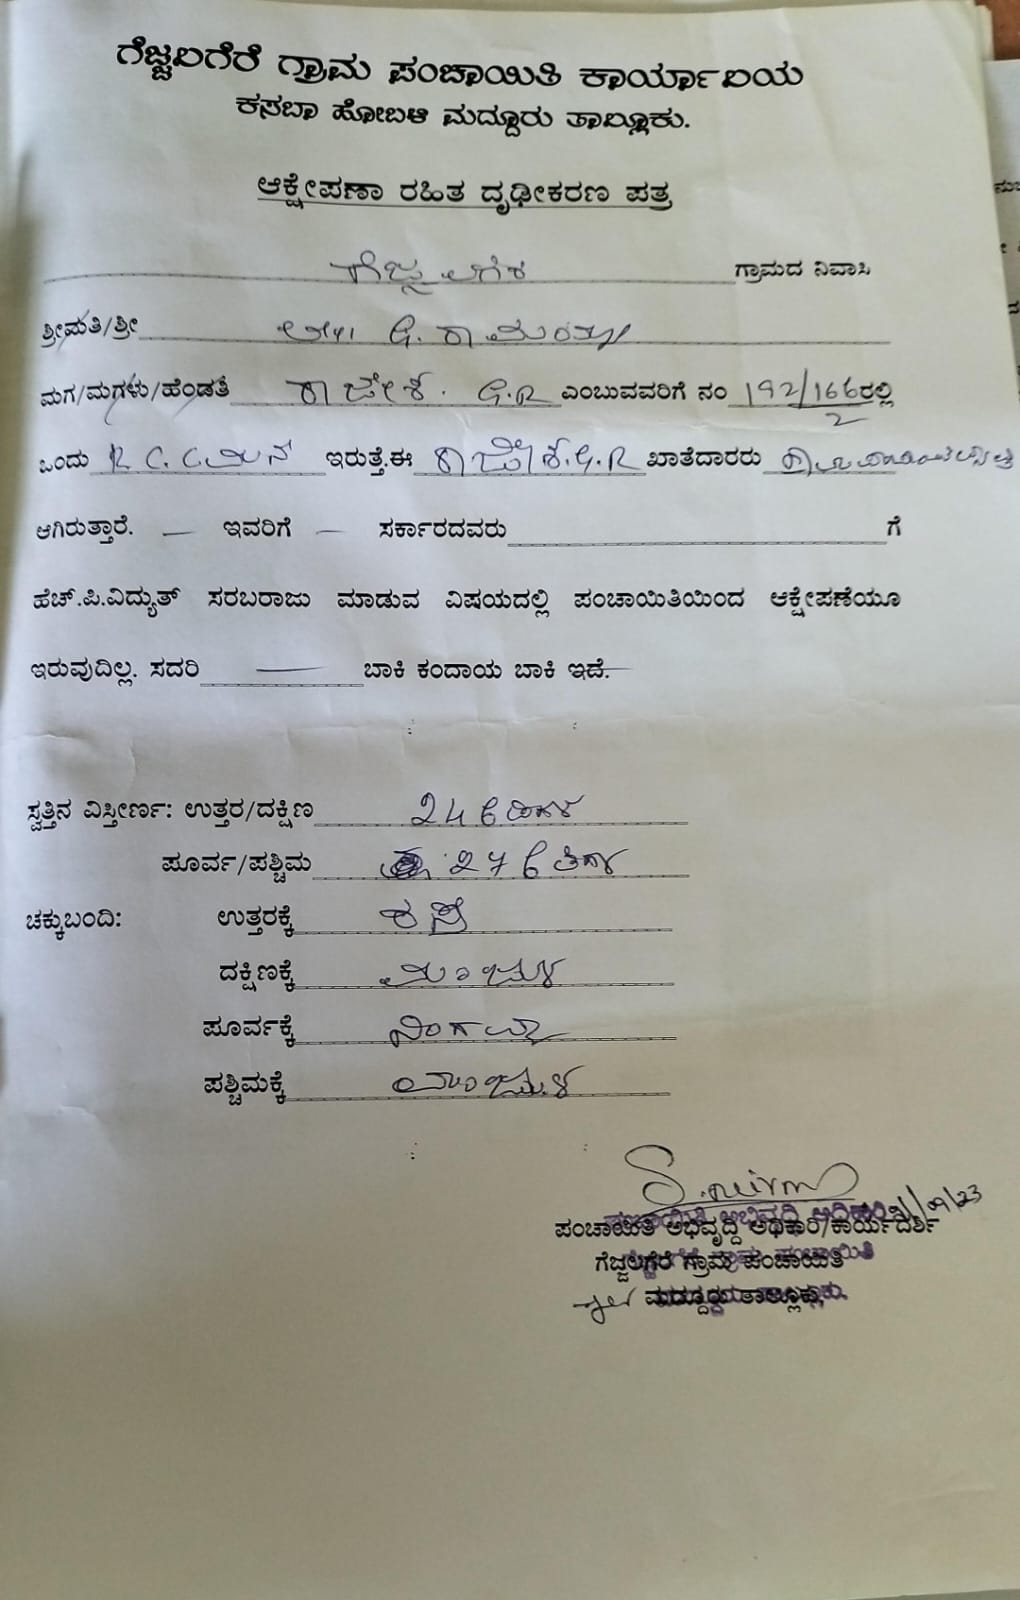 ಗೆಜ್ಜಲಗೆರೆ ಗ್ರಾಮ ಪಂಚಾಯಿತಿ ಕಾರ್ಯಾಲಯ
ಕಸಬಾ ಹೋಬಳಿ ಮದ್ದೂರು ತಾಲ್ಲೂಕು.
ಆಕ್ಷೇಪಣಾ ರಹಿತ ದೃಢೀಕರಣ ಪತ್ರ
ಗೆಜ್ಜಲಗೆರೆ ಗ್ರಾಮದ ನಿವಾಸಿ
ಶ್ರೀಮತಿ/ಶ್ರೀ G.
ಮಗ/ಮಗಳು/ಹೆಂಡತಿ ರಾಜೇಶ. G.R ಎಂಬುವವರಿಗೆ ನಂ 192/166/2 ರಲ್ಲಿ
ಒಂದು R.C.C ಮನೆ ಇರುತ್ತೆ.ಈ ರಾಜೇಶ.G.R ಖಾತೆದಾರರು
ಆಗಿರುತ್ತಾರೆ. — ಇವರಿಗೆ — ಸರ್ಕಾರದವರು ಗೆ
ಹೆಚ್.ಪಿ.ವಿದ್ಯುತ್ ಸರಬರಾಜು ಮಾಡುವ ವಿಷಯದಲ್ಲಿ ಪಂಚಾಯಿತಿಯಿಂದ ಆಕ್ಷೇಪಣೆಯೂ
ಇರುವುದಿಲ್ಲ. ಸದರಿ — ಬಾಕಿ ಕಂದಾಯ ಬಾಕಿ ಇದೆ.
ಸ್ವತ್ತಿನ ವಿಸ್ತೀರ್ಣ: ಉತ್ತರ/ದಕ್ಷಿಣ
ಪೂರ್ವ/ಪಶ್ಚಿಮ
ಚಕ್ಕುಬಂದಿ: ಉತ್ತರಕ್ಕೆ ರಸ್ತೆ
ದಕ್ಷಿಣಕ್ಕೆ ಮಂಜುಳ
ಪೂರ್ವಕ್ಕೆ
ಪಶ್ಚಿಮಕ್ಕೆ
/09/23
ಪಂಚಾಯಿತಿ ಅಭಿವೃದ್ದಿ ಅಧಿಕಾರಿ/ಕಾರ್ಯದರ್ಶಿ
ಗೆಜ್ಜಲಗೆರೆ ಗ್ರಾಮ ಪಂಚಾಯಿತಿ
ಮದ್ದೂರು ತಾಲ್ಲೂಕು.